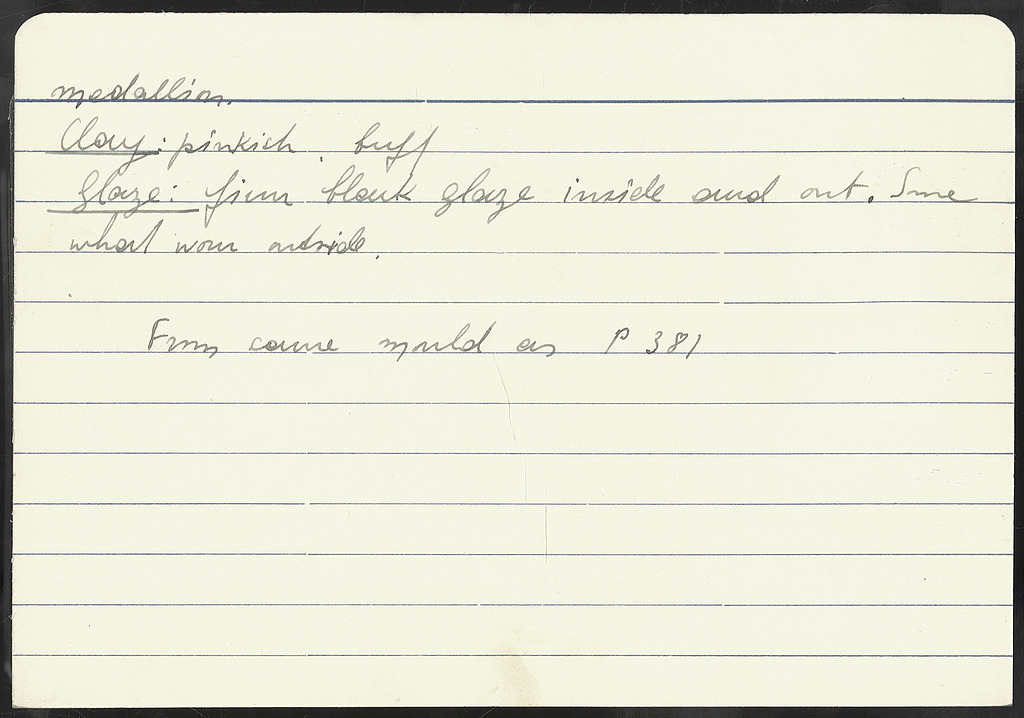 medallion.
Clay: pinkish buff
Glaze: firm black glaze inside and out. Some
what worn outside.
From same mould as P 381